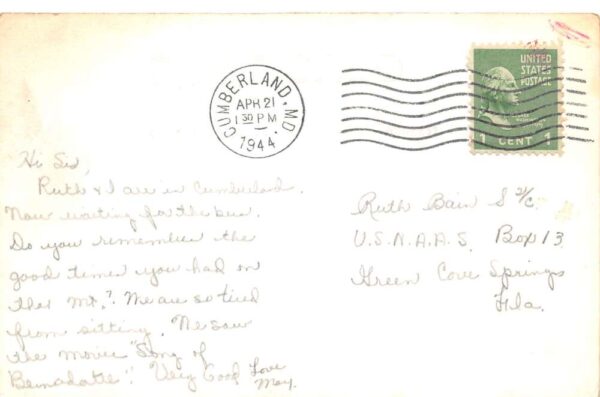 CUMBERLAND, MD.
APR 21
1 30 PM
1944
UNITED
STATES
POSTAGE
1 CENT 1
Hi Sis,
Ruth & I are in Cumberland.
Now waiting for the bus.
Do you remember the
good times you had on
that Mt.? We are so tired
from sitting. We saw
the movie "Song of
Bernadatte". Very Good
Love
May.
Ruth Bain S 2/C.
U.S.N.A.A.S. Box 13
Green Cove Springs
Fla.